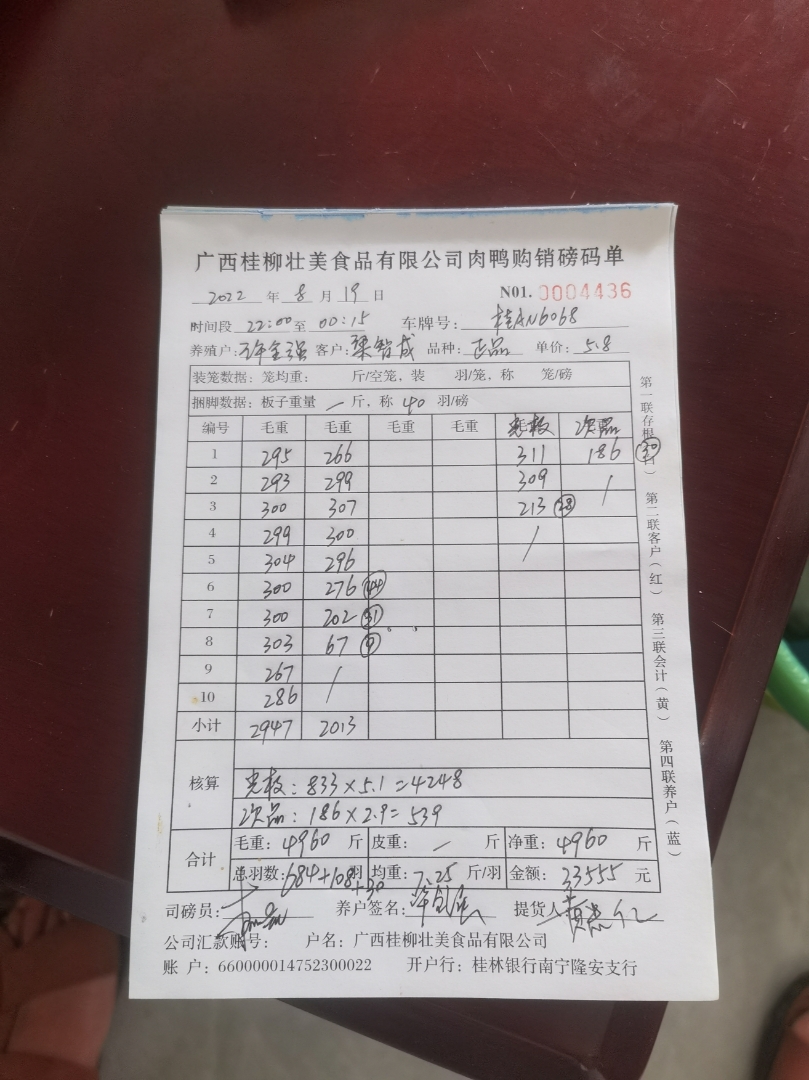 广西桂柳壮美食品有限公司肉鸭购销磅码单
2022 年 8 月 19 日 N01. 0004436
时间段 22:00 至 00:15 车牌号: 桂AN6068
养殖户: 许金强 客户: 梁智成 品种: 正品 单价: 5.8
装笼数据: 笼均重: 斤/空笼, 装 羽/笼, 称 笼/磅
捆脚数据: 板子重量 / 斤, 称 40 羽/磅
编号 毛重 毛重 毛重 毛重 光板 次品
1 295 266 311 186 30
2 293 299 309 /
3 300 307 213 28
4 299 300 /
5 304 296
6 300 276 44
7 300 202 31
8 303 67 9
9 267 /
10 286 /
小计 2947 2013
核算
光板: 833×5.1=4248
次品: 186×2.9=539
合计
毛重: 4960 斤 皮重: / 斤 净重: 4960 斤
总羽数: 684+108+30 羽 均重: 7.25 斤/羽 金额: 33555 元
司磅员: 养户签名: 许金强 提货人:
公司汇款账号: 户名: 广西桂柳壮美食品有限公司
账 户: 660000014752300022 开户行: 桂林银行南宁隆安支行
第一联存根(白) 第二联客户(红) 第三联会计(黄) 第四联养户(蓝)